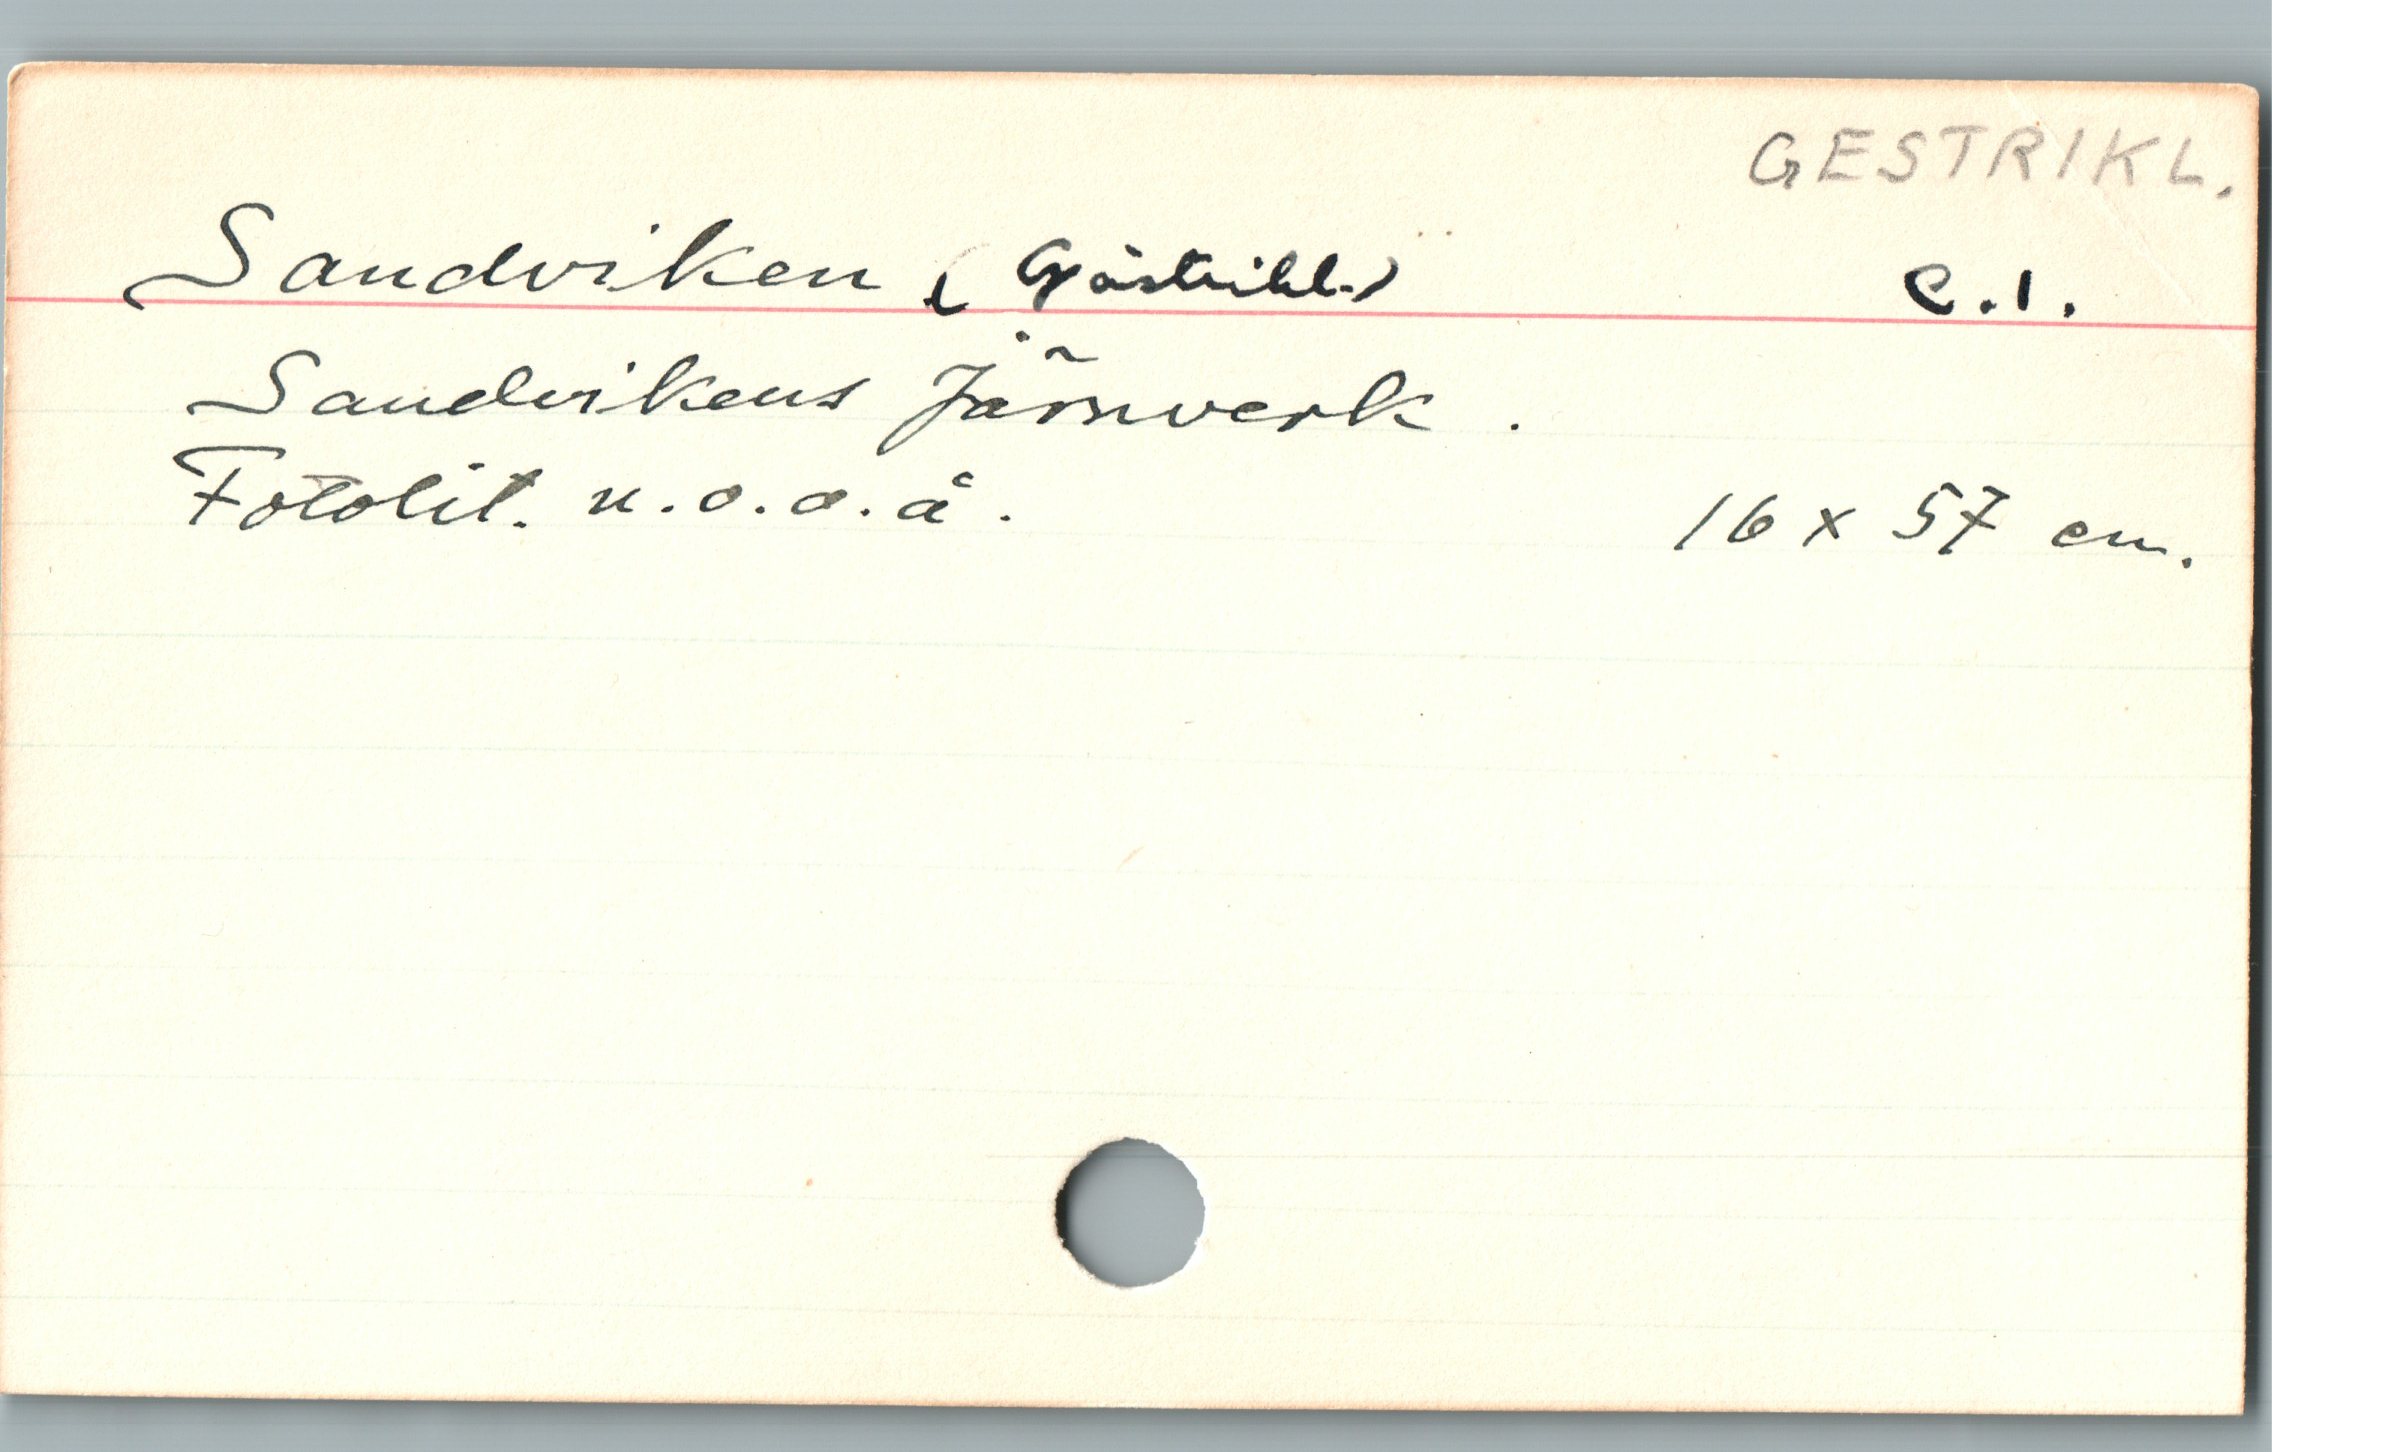 GESTRIKL.
Sandviken (Gästrikl.) C.1.
Sandvikens Järnverk.
Fotolit. u.o.o.å. 16 x 57 cm.